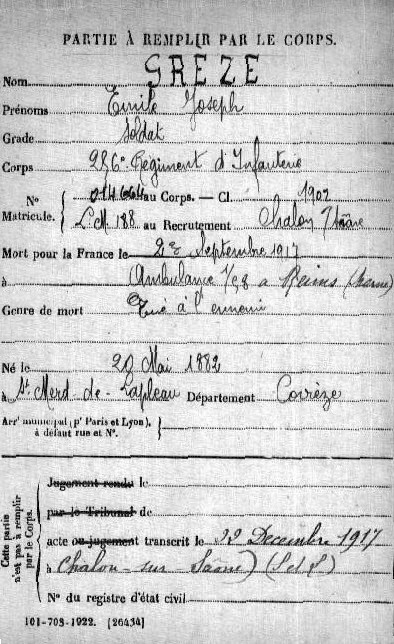 PARTIE À REMPLIR PAR LE CORPS.
Nom GREZE
Prénoms Emile Joseph
Grade Soldat
Corps 286e Régiment d'Infanterie
N° 014664 au Corps. — Cl. 1902
Matricule. L.M. 188 au Recrutement Chalon
Mort pour la France le Septembre 1917
à Ambulance 1/98 a Reims (Marne)
Genre de mort Tué à l'ennemi
Né le 20 Mai 1882
à St Merd-de-Lapleau Département Corrèze
Arrt municipal (pr Paris et Lyon),
à défaut rue et N°.
Cette partie
n'est pas à remplir
par le Corps.
Jugement rendu le
par le Tribunal de
acte ou jugement transcrit le 22 Decembre 1917
à Chalon-sur-Saône (S et L)
N° du registre d'état civil
101-708-1922. [26434]